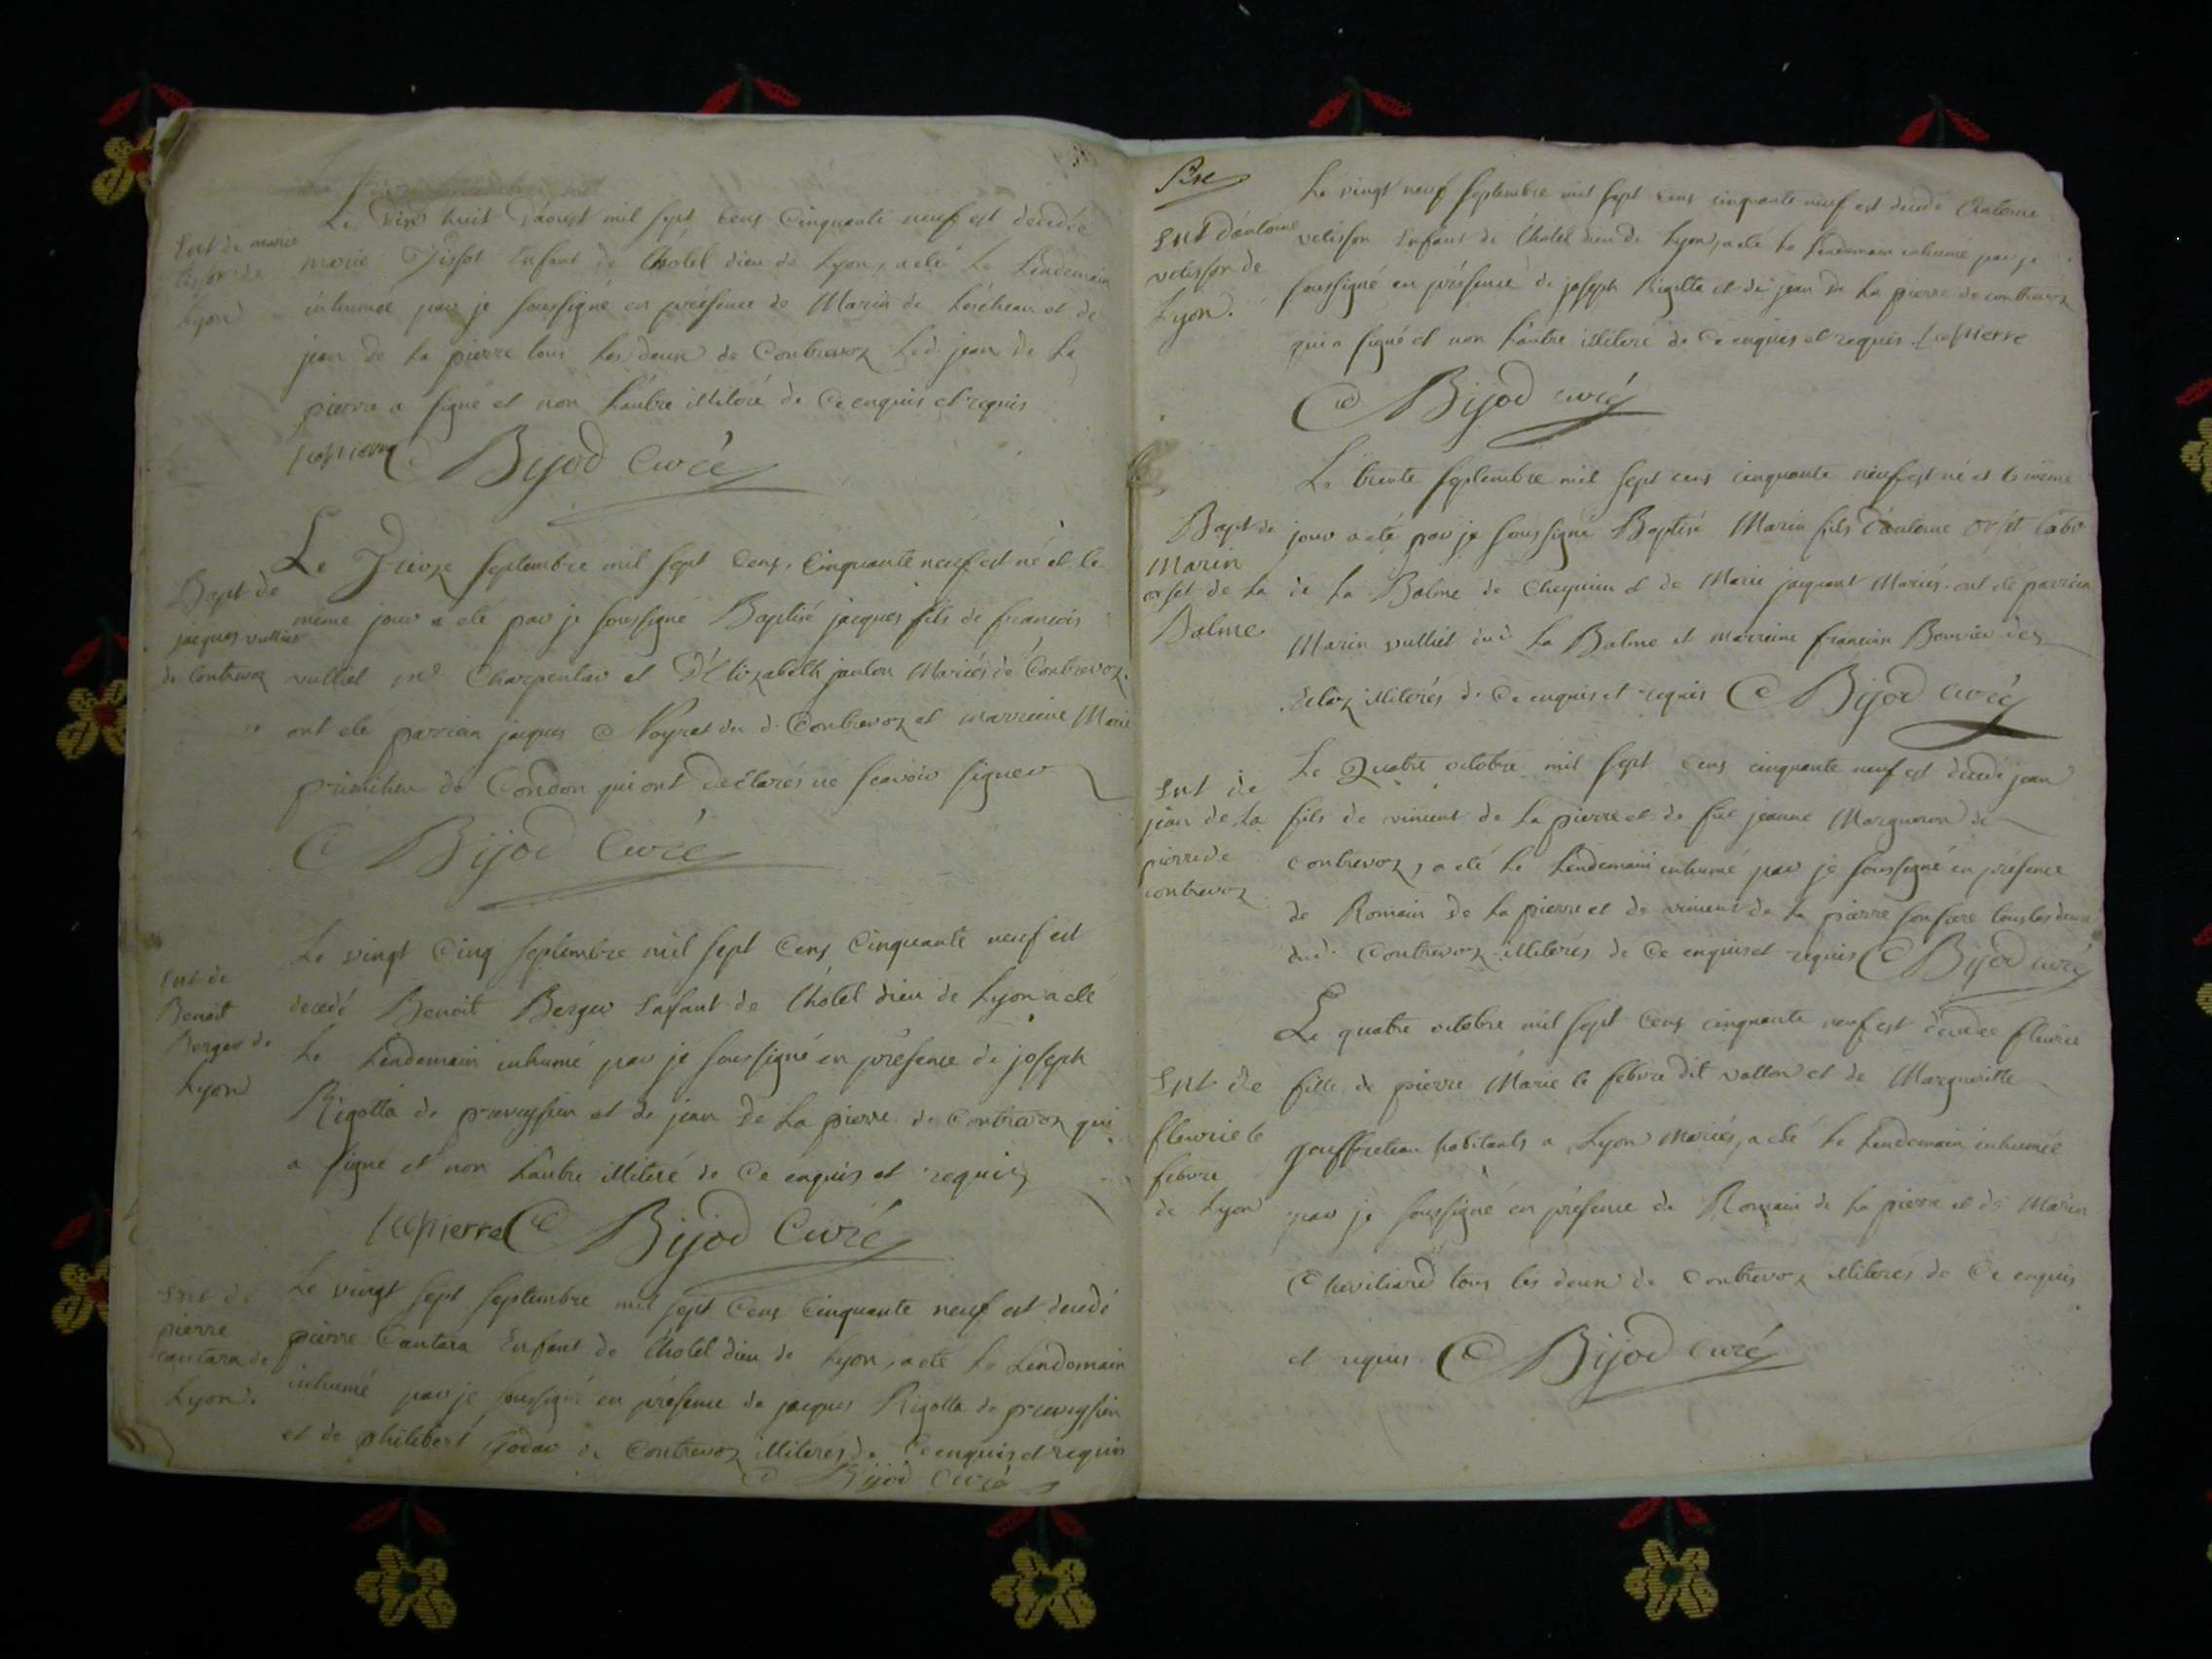 Le dix huit d'aoust mil sept cens cinquante neuf est decedée
Ent de marie
tissot de
Lyon
marie Tissot Enfant de lhotel dieu de Lyon, a eté le Lendemain
inhumée par je soussigné en présence de Marin de et de
jean de La pierre tous les deux de Contrevoz Led. jean de La
pierre a signé et non L'autre illiteré de Ce enquis et requis
Lapierre C Bijod Curé
Le Treize septembre mil sept cens Cinquante neuf est né et le
Bapt de
jacques vulliet
de Contrevoz
même jour a eté par je soussigné Baptisé jacques fils de francois
vulliet Charpentier et D'Elizabeth janton Mariés de Contrevoz.
ont eté parrain jacques Noyret du d. Contrevoz et marreine Marie
de Condon qui ont declarés ne scavoir signer
C Bijod Curé
Le vingt Cinq septembre mil sept Cens Cinquante neuf est
Ent de
Benoit
Berger de
Lyon
decedé Benoit Berger Enfant de lhotel dieu de Lyon a eté
Le Lendemain inhumé par je soussigné en présence de joseph
Rigotta de preveyssieu et de jean de La pierre de Contrevoz qui
a signé et non L'autre illiteré de Ce enquis et requis
Lapierre C Bijod Curé
Ent de
pierre
cantara de
Lyon.
Le vingt sept septembre mil sept Cens Cinquante neuf est decedé
pierre Cantara Enfant de lhotel dieu de Lyon, a eté Le Lendemain
inhumé par je soussigné en présence de jacques Rigotta de preveyssieu
et de philibert de Contrevoz illiterés de Ce enquis et requis
C Bijod Curé
Le vingt neuf septembre mil sept cens cinquante neuf est decedé Antoine
Ent d'antoine
velisson de
Lyon.
velisson Enfant de lhotel dieu de Lyon, a eté Le Lendemain inhumé par je
soussigné en présence de joseph Rigotta et de jean de La pierre de contrevoz
qui a signé et non L'autre illiteré de Ce enquis et requis. Lapierre
C Bijod curé
Le trente septembre mil sept cens cinquante neuf est né et le même
Bapt de
Marin
orset de La
Balme
jour a eté par je soussigné Baptisé Marin fils d'antoine orset labr
de La Balme de Cheynieu et de Marie jaquant Mariés. ont eté parrain
Marin vulliet dud. La Balme et marraine francoise Bouvier des
illiterés de Ce enquis et requis C Bijod Curé
Le Quatre octobre mil sept Cens cinquante neuf est decedé jean
Ent de
jean de La
pierre de
contrevoz
fils de vincent de La pierre et de füe jeanne Margueron de
contrevoz, a eté Le Lendemain inhumé par je soussigné en présence
de Romain de La pierre et de vincent de La pierre son frere tous les deux
dud. Contrevoz illiterés de Ce enquis et requis C Bijod curé
Le quatre octobre mil sept Cens cinquante neuf est decedée fleurie
Ent de
fleurie le
febvre
de Lyon
fille de pierre Marie le febvre dit vallon et de Margueritte
habitants a Lyon Mariés, a eté Le Lendemain inhumée
par je soussigné en présence de Romain de La pierre et de Marin
Cheviliard tous les deux de Contrevoz illiterés de Ce enquis
et requis C Bijod Curé